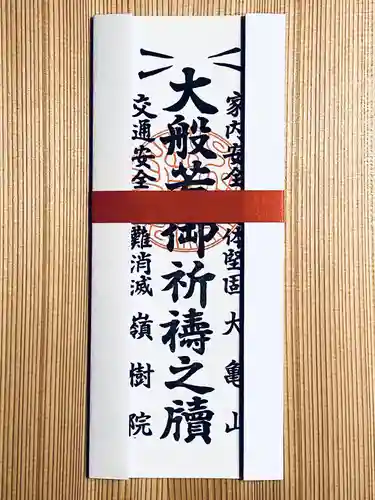 家内安全 体堅固 大亀山
大般若御祈祷之牘
交通安全 難消滅 嶺樹院